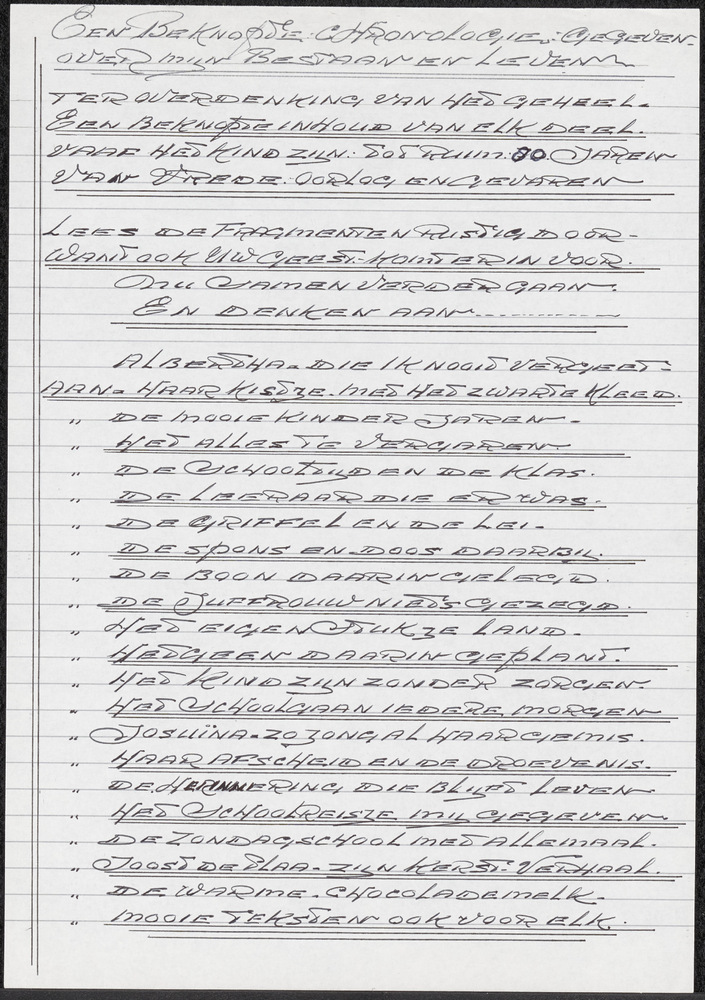 EEN BEKNOPTE: CHRONOLOGIE: GEGEVEN-
OVER MIJN BESTAAN EN LEVEN
TER OVERDENKING VAN HET GEHEEL-
EEN BEKNOPTE INHOUD VAN ELK DEEL.
VANAF HET KIND ZIJN: TOT RUIM: 80 JAREN
VAN VREDE: OORLOG EN GEVAREN
LEES DE FRAGMENTEN RUSTIG DOOR-
WANT OOK UW GEEST-KOMT ERIN VOOR.
NU SAMEN VERDER GAAN-
EN DENKEN AAN..............
ALBERTHA-DIE IK NOOIT VERGEET-
AAN- HAAR KISTJE-MET HET ZWARTE KLEED.
" DE MOOIE KINDER JAREN-
" HET ALLES TE VERGAREN-
" DE SCHOOLTIJD EN DE KLAS.
" DE LEERAAR DIE ER WAS.
" DE GRIFFEL EN DE LEI-
" DE SPONS EN-DOOS DAARBIJ.
" DE BOON DAARIN GELEGD.
" DE JUFFROUW NIETS GEZEGD.
" HET EIGEN STUKJE LAND.
" HETGEEN DAARIN GEPLANT.
" HET KIND ZIJN ZONDER ZORGEN.
" HET SCHOOLGAAN IEDERE MORGEN
" JOSUÏNA-ZO JONG AL HAAR GEMIS.
" HAAR AFSCHEID EN DE DROEVENIS.
" DE HERINNERING DIE BLIJFT LEVEN
" HET SCHOOLREISJE MIJ GEGEVEN
" DE ZONDAGSCHOOL MET ALLEMAAL.
" JOOST DE PLAA-ZIJN KERST-VERHAAL.
" DE WARME-CHOCOLADEMELK-
" MOOIE TEKSTEN OOK VOOR ELK.